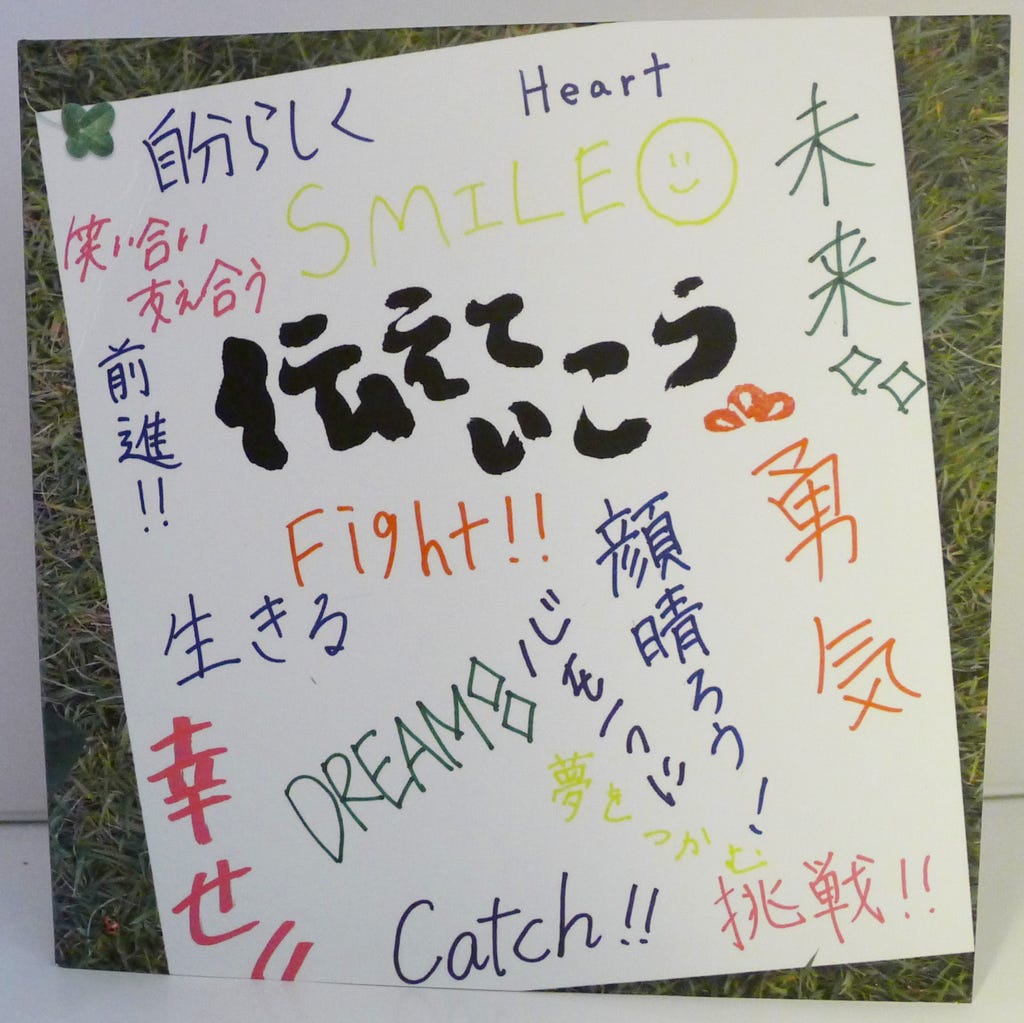 Heart
自分らしく
SMILE
未来
笑い合い
支え合う
伝えて
いこう
前進!!
勇気
Fight!!
顔晴ろう!
生きる
心をひとつに
DREAM
夢をつかむ
幸せ!!
Catch!!
挑戦!!